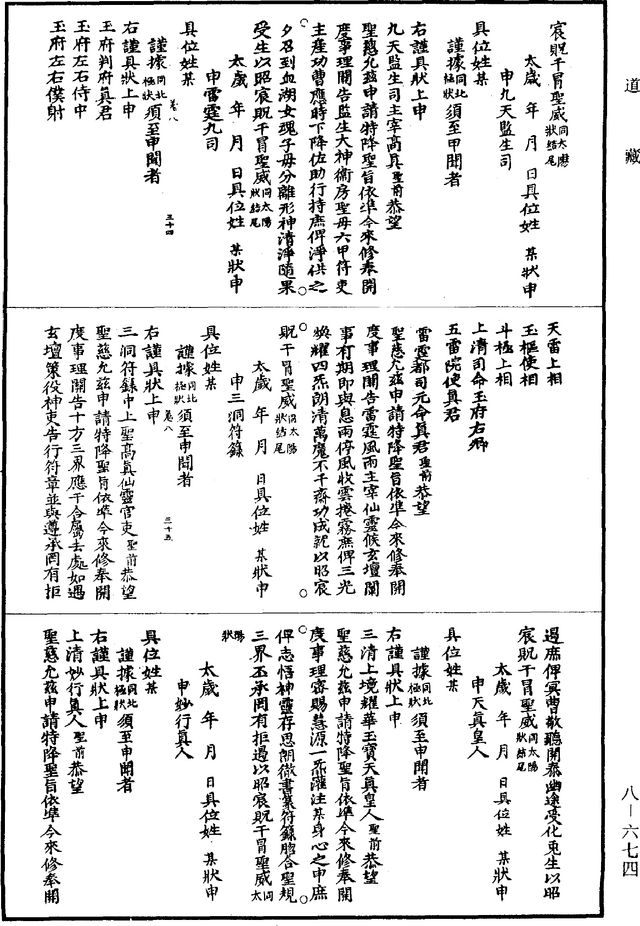 道藏
宸貺干冒聖威同太陽狀結尾
太歲 年 月 日具位姓 某狀申
申九天監生司
具位姓某
謹據同北極狀須至申聞者
右謹具狀上申
九天監生司主宰高真聖前恭望
聖慈允茲申請特降聖旨依準今來修奉開
度事理關告監生大神衛房聖母六甲符吏
主產功曹應時下降位助行持庶俾淨供之
夕召到血湖女魂子母分離形神清淨隨果
受生以昭宸貺干冒聖威同太陽狀結尾
太歲 年 月 日具位姓 某狀申
申雷霆九司
具位姓某
謹據同北極狀須至申聞者
右謹具狀上申
玉府判府真君
玉府左右侍中
玉府左右僕射
卷八
三十四
天雷上相
玉樞使相
斗極上相
上清司命玉府右卿
五雷院使真君
雷霆都司元命真君聖前恭望
聖慈允茲申請特降聖旨依準今來修奉開
度事理關告雷霆風雨主宰仙靈候玄壇闡
事有期即與息雨停風收雲捲霧庶俾三光
煥耀四炁朗清萬魔不干齋功成就以昭宸
貺干冒聖威同太陽狀結尾
太歲 年 月 日具位姓 某狀申
申三洞符籙
具位姓某
謹據同北極狀須至申聞者
右謹具狀上申
三洞符籙中上聖高真仙靈官吏聖前恭望
聖慈允茲申請特降聖旨依準今來修奉開
度事理關告十方三界應干合屬去處如遇
玄壇策役神吏告行符章並與遵承罔有拒
卷八
三十五
遏庶俾冥曹敬聽開泰幽途受化更生以昭
宸貺干冒聖威同太陽狀結尾
太歲 年 月 日具位姓 某狀申
申天真皇人
具位姓某
謹據同北極狀須至申聞者
右謹具狀上申
三清上境耀華玉寶天真皇人聖前恭望
聖慈允茲申請特降聖旨依準今來修奉開
度事理密賜慧源一炁灌注某身心之中庶
俾志悟神靈存思朗徹書篆符籙脗合聖規
三界丕承罔有拒遏以昭宸貺干冒聖威同太陽狀
太歲 年 月 日具位姓 某狀申
申妙行真人
具位姓某
謹據同北極狀須至申聞者
右謹具狀上申
上清妙行真人聖前恭望
聖慈允茲申請特降聖旨依準今來修奉開
八－六七四